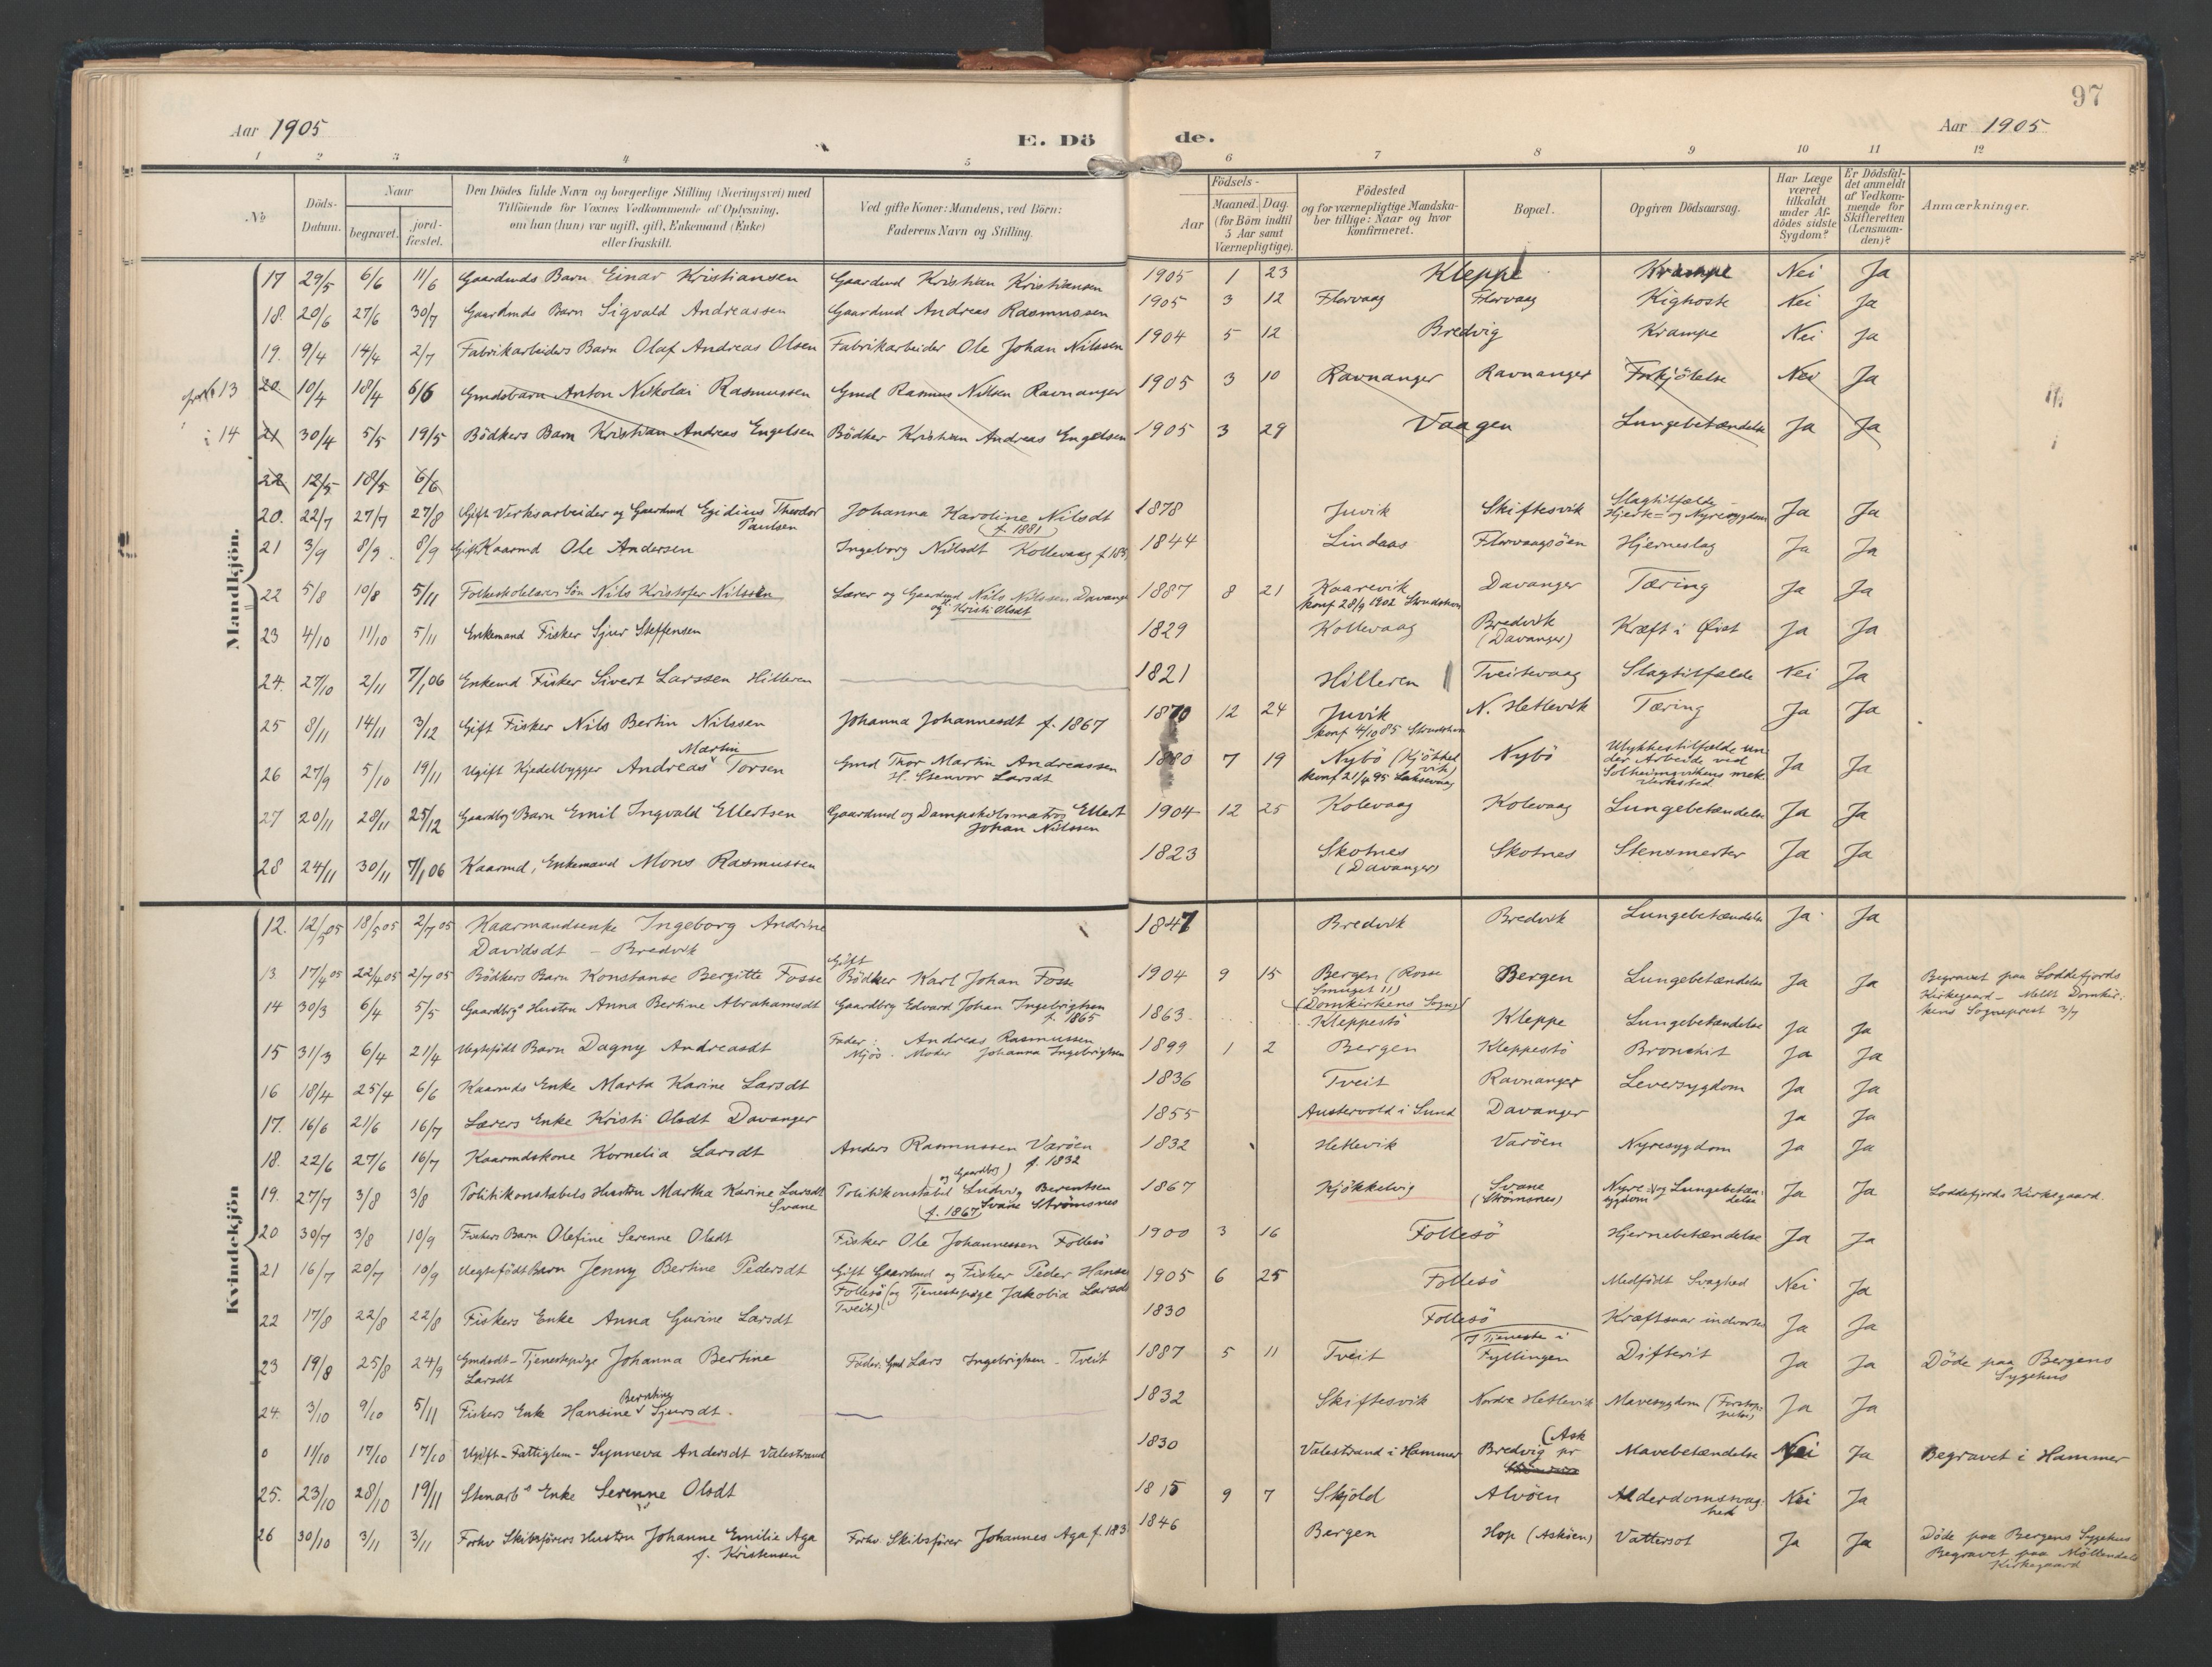 97
Aar 1905
E. Dö de.
Aar 1905
1 2 3 4 5 6 7 8 9 10 11 12
No
Döds-Datum.
Naar
begravet.
jord-fæstet.
Den Dödes fulde Navn og borgerlige Stilling (Næringsvei) med
Tilföiende for Voxnes Vedkommende af Oplysning,
om han (hun) var ugift, gift, Enkemand (Enke)
eller fraskilt.
Ved gifte Koner: Mandens, ved Börn:
Faderens Navn og Stilling.
Födsels-
Aar
Maaned. Dag.
(for Börn indtil
5 Aar samt
Værnepligtige).
Födested
og for værnepligtige Mandska-
ber tillige: Naar og hvor
konfirmeret.
Bopæl.
Opgiven Dödsaarsag.
Har Læge
været
tilkaldt
under Af-
dödes sidste
Sygdom?
Er Dödsfal-
det anmeldt
af Vedkom-
mende for
Skifteretten
(Lensman-
den)?
Anmærkninger.
Mandkjön.
17 29/5 6/6 11/6 Gaardmds Barn Einar Kristiansen Gaardmd Kristian Kristiansen 1905 1 23 Kleppe Krampe Nei Ja
18. 20/6 27/6 30/7 Gaardmds Barn Sigvald Andreassen Gaardmd Andreas Rasmussen 1905 3 12 Florvaag Florvaag Kighoste Nei Ja
19. 9/4 14/4 2/7 Fabrikarbeiders Barn Olaf Andreas Olsen Fabrikarbeider Ole Johan Nilssen 1904 5 12 Bredvig Krampe Nei Ja
13 20 10/4 18/4 6/6 Gmdsbarn Anton Nikolai Rasmussen Gmd Rasmus Nilsen Ravnanger 1905 3 10 Ravnanger Ravnanger Forkjölelse Nei Ja
i 14 21 30/4 5/5 19/5 Bödkers Barn Kristian Andreas Engelsen Bödker Kristian Andreas Engelsen 1905 3 29 Vaagen Lungebetændelse Ja Ja
22 12/5 18/5 6/6
20. 22/7 27/7 27/8 Gift Verksarbeider og Gaardmd Egidius Theodor Paulsen Johanna Karoline Nilsdt (f. 1881) 1878 Juvik Skiftesvik Slagtilfælde – Hjerte= og Nyresygdom Ja Ja
21 3/9 8/9 8/9 Gift Kaarmd Ole Andersen Ingeborg Nilsdt Kollevaag 1844 Lindaas Florvaagöen Hjerneslag Ja Ja
22 5/8 10/8 5/11 Folkeskolelærers Sön Nils Kristofer Nilssen Lærer og Gaardmd Nils Nilssen Davanger og Kristi Olsdt 1887 8 21 Kaarevik konf 28/9 1902 Davanger Tæring Ja Ja
23 4/10 11/10 5/11 Enkemand Fisker Sjur Steffensen 1829 Kollevaag Bredvik (Davanger) Kræft i Ja Ja
24. 27/10 2/11 7/1 06 Enkemd Fisker Sivert Larssen Hilleren 1821 Hilleren Tveitevaag Slagtilfælde Nei Ja
25 8/11 14/11 3/12 Gift Fisker Nils Bertin Nilssen Johanna Johannesdt f. 1867 1870 12 24 Juvik konf 4/10 85 N. Hetlevik Tæring Ja Ja
26 27/9 5/10 19/11 Ugift Kjedelbygger Andreas Martin Torsen Gmd Thor Martin Andreassen H. Stenvor Larsdt 1880 7 19 Nybö (Kjökkelvik) konf 21/4 95 Laksevaag Nybö Ulykkestilfælde under Arbeide ved Solheimsvikens mek Verksted Ja Ja
27 20/11 28/11 25/12 Gaardbrs Barn Emil Ingvald Ellertsen Gaardmd og Dampskibsmatros Ellert Johan Nilssen 1904 12 25 Kolevaag Kolevaag Lungebetændelse Ja Ja
28 24/11 30/11 7/1 06 Kaarmd, Enkemand Mons Rasmussen 1823 Skotnes (Davanger) Skotnes Stensmerter Ja Ja
Kvindekjön
12. 12/5 05 18/5 05 2/7 05 Kaarmandsenke Ingeborg Andrine Davidsdt – Bredvik 1847 Bredvik Bredvik Lungebetændelse Ja Ja
13 17/4 05 22/4 05 2/7 05 Bödkers Barn Konstanse Bergitte Fosse Gift Bödker Karl Johan Fosse 1904 9 15 Bergen (Rosesmuget 11) (Domkirkens Sogn) Bergen Lungebetændelse Ja Ja Begravet paa Loddefjords Kirkegaard – Meldt Domkirkens Sogneprest 3/7
14 30/3 6/4 5/5 Gaardbrs Hustru Anna Bertine Abrahamsdt Gaardbrg Edvard Johan Ingebrigtsen f. 1865 1863 Kleppestö Kleppe Lungebetændelse Ja Ja
15 31/3 6/4 21/4 Uegtefödt Barn Dagny Andreasdt Fader: Andreas Rasmussen Mjös. Moder Johanna Ingebrigtsen 1899 1 2 Bergen Kleppestö Bronchit Ja Ja
16 18/4 25/4 6/6 Kaarmds Enke Marta Karine Larsdt 1836 Tveit Ravnanger Leversygdom Ja Ja
17. 16/6 21/6 16/7 Lærers Enke Kristi Olsdt Davanger 1855 Austervold i Sund Davanger Ja Ja
18. 22/6 27/6 16/7 Kaarmdskone Kornelia Larsdt Anders Rasmussen Varöen f. 1832 1832 Hetlevik Varöen Nyresygdom Ja Ja
19. 27/7 3/8 3/8 Politikonstabels Hustru Martha Karine Larsdt Svane Politikonstabel (og Gaardbrg) Ludvig Berentsen (f. 1867) Svane Strömsnes 1867 Kjökkelvig Svane (Strömsnes) Nyresygdom og Lungebetændelse Ja Ja Loddefjords Kirkegaard.
20 30/7 3/8 10/9 Fiskers Barn Olefine Serenne Olsdt Fisker Ole Johannessen Follesö 1900 3 16 Follesö Hjernebetændelse Ja Ja
21 16/7 20/7 10/9 Uegtefödt Barn Jenny Bertine Pedersdt Gift Gaardmd og Fisker Peder Hansen Follesö (og Tjenestepige Jakobia Larsdt Tveit) 1905 6 25 Follesö Medfödt Svaghed Nei Ja
22 17/8 22/8 22/8 Fiskers Enke Anna Gurine Larsdt 1830 Follesö Kræftsaar indvortes Ja Ja
23 19/8 25/8 24/9 Gmdsdt – Tjenestepige Johanna Bertine Larsdt Fader: Gmd Lars Ingebrigtsen – Tveit 1887 5 11 Tveit I Tjeneste i Fyllingen Difterit Ja Ja Döde paa Bergens Sygehus
24. 3/10 9/10 5/11 Fiskers Enke Hansine Berntine Sjursdt. 1832 Skiftesvik Nordre Hetlevik Mavesygdom Ja Ja
0 11/10 17/10 17/10 Ugift – Fattiglem – Synneva Andersdt Valestrand 1830 Valestrand i Hammer Bredvig pr (Ask Mavebetændelse Nei Ja Begravet i Hammer
25. 23/10 28/10 19/11 Stenarbs Enke Serenne Olsdt 1815 9 7 Skjold Alvöen Alderdomssvaghed Nei Ja
26 30/10 3/11 3/11 Forhv Skibsförers Hustru Johanne Emilie Aga f. Kristensen Forhv. Skibsförer Johannes Aga 1846 Bergen Hop (Asköen) Vattersot Ja Ja Döde paa Bergens Sygehus Begravet paa Möllendals Kirkegaard